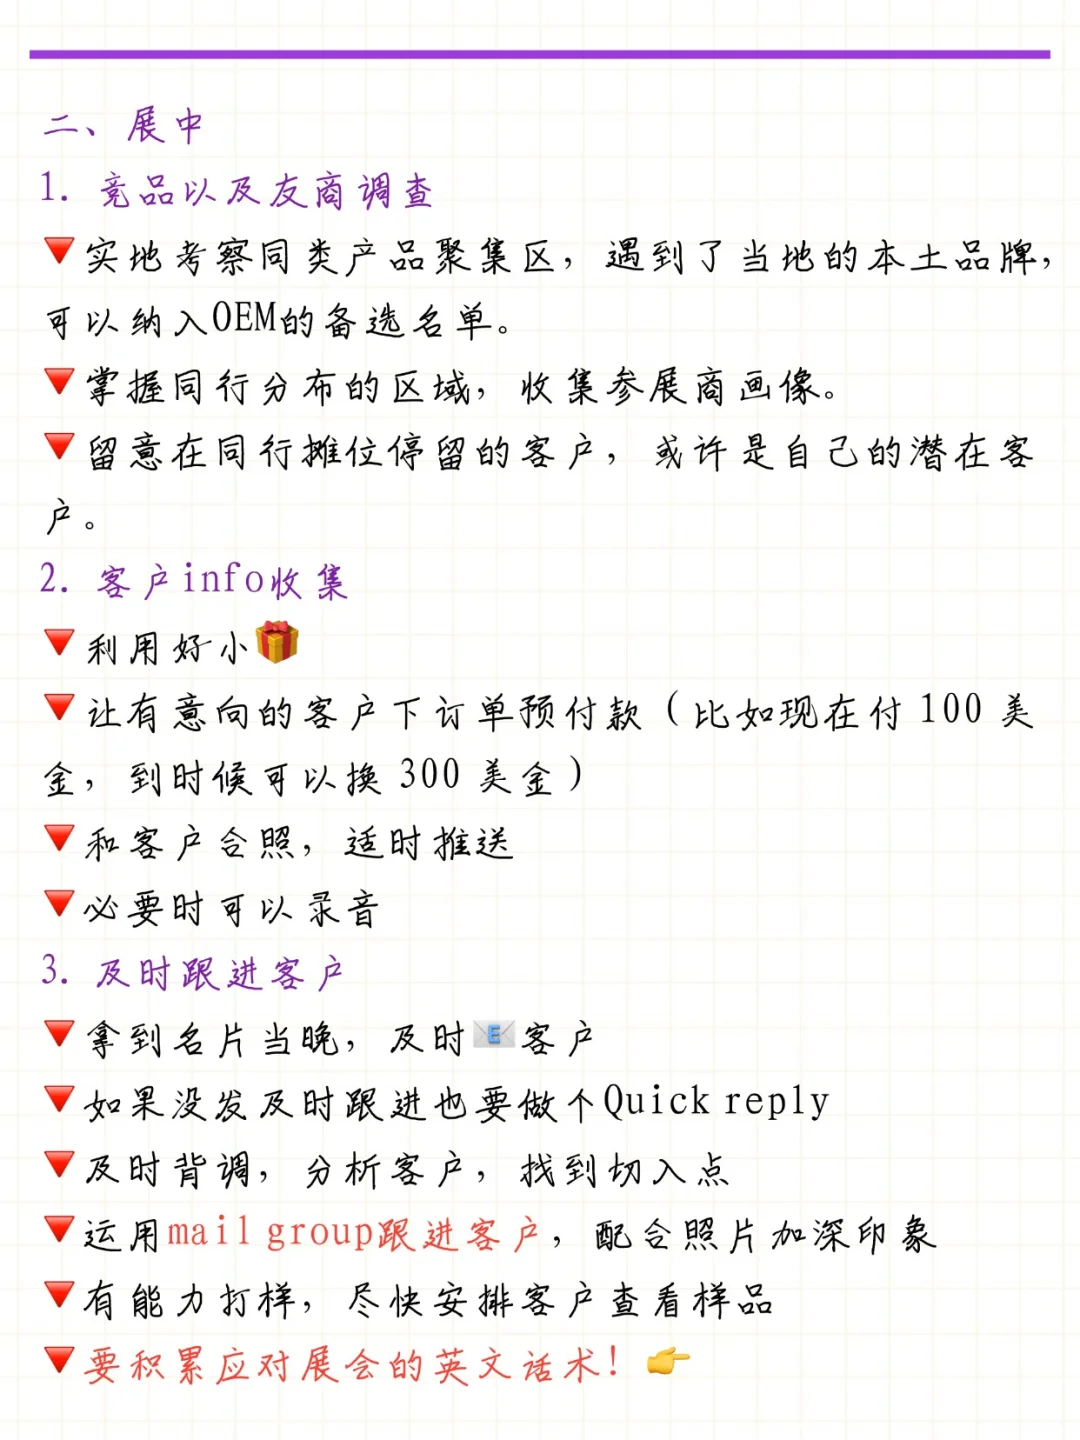 二、展中
1. 竞品以及友商调查
🔻实地考察同类产品聚集区，遇到了当地的本土品牌，
可以纳入OEM的备选名单。
🔻掌握同行分布的区域，收集参展商画像。
🔻留意在同行摊位停留的客户，或许是自己的潜在客
户。
2. 客户info收集
🔻利用好小🎁
🔻让有意向的客户下订单预付款（比如现在付 100 美
金，到时候可以换 300 美金）
🔻和客户合照，适时推送
🔻必要时可以录音
3. 及时跟进客户
🔻拿到名片当晚，及时📧客户
🔻如果没发及时跟进也要做个Quick reply
🔻及时背调，分析客户，找到切入点
🔻运用mail group跟进客户，配合照片加深印象
🔻有能力打样，尽快安排客户查看样品
🔻要积累应对展会的英文话术！👉